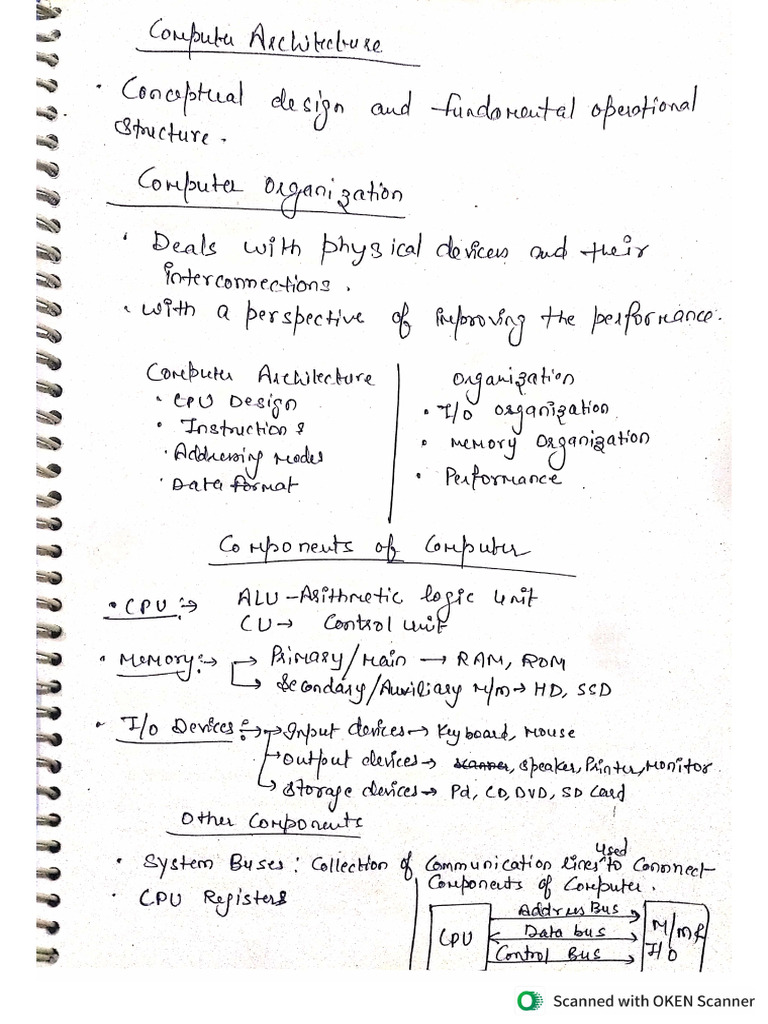 Computer Architecture
• Conceptual design and fundamental operational
structure.
Computer Organization
• Deals with physical devices and their
interconnections.
• with a perspective of improving the performance.
Computer Architecture
• CPU Design
• Instructions
• Addressing Modes
• Data format
Organization
• I/O organization
• Memory Organization
• Performance
Components of Computer
• CPU :→ ALU – Arithmetic logic Unit
CU → Control unit
• Memory :→ → Primary/Main → RAM, ROM
→ Secondary/Auxiliary M/m → HD, SSD
• I/o Devices :→ → Input devices → Keyboard, Mouse
→ Output devices → scanner, Speaker, Printer, Monitor.
→ Storage devices → Pd, CD, DVD, SD Card
Other Components
• System Buses : Collection of Communication lines used to Connect
Components of Computer.
• CPU Registers
CPU
Address Bus
Data bus
Control Bus
M/m &
I/O
Scanned with OKEN Scanner